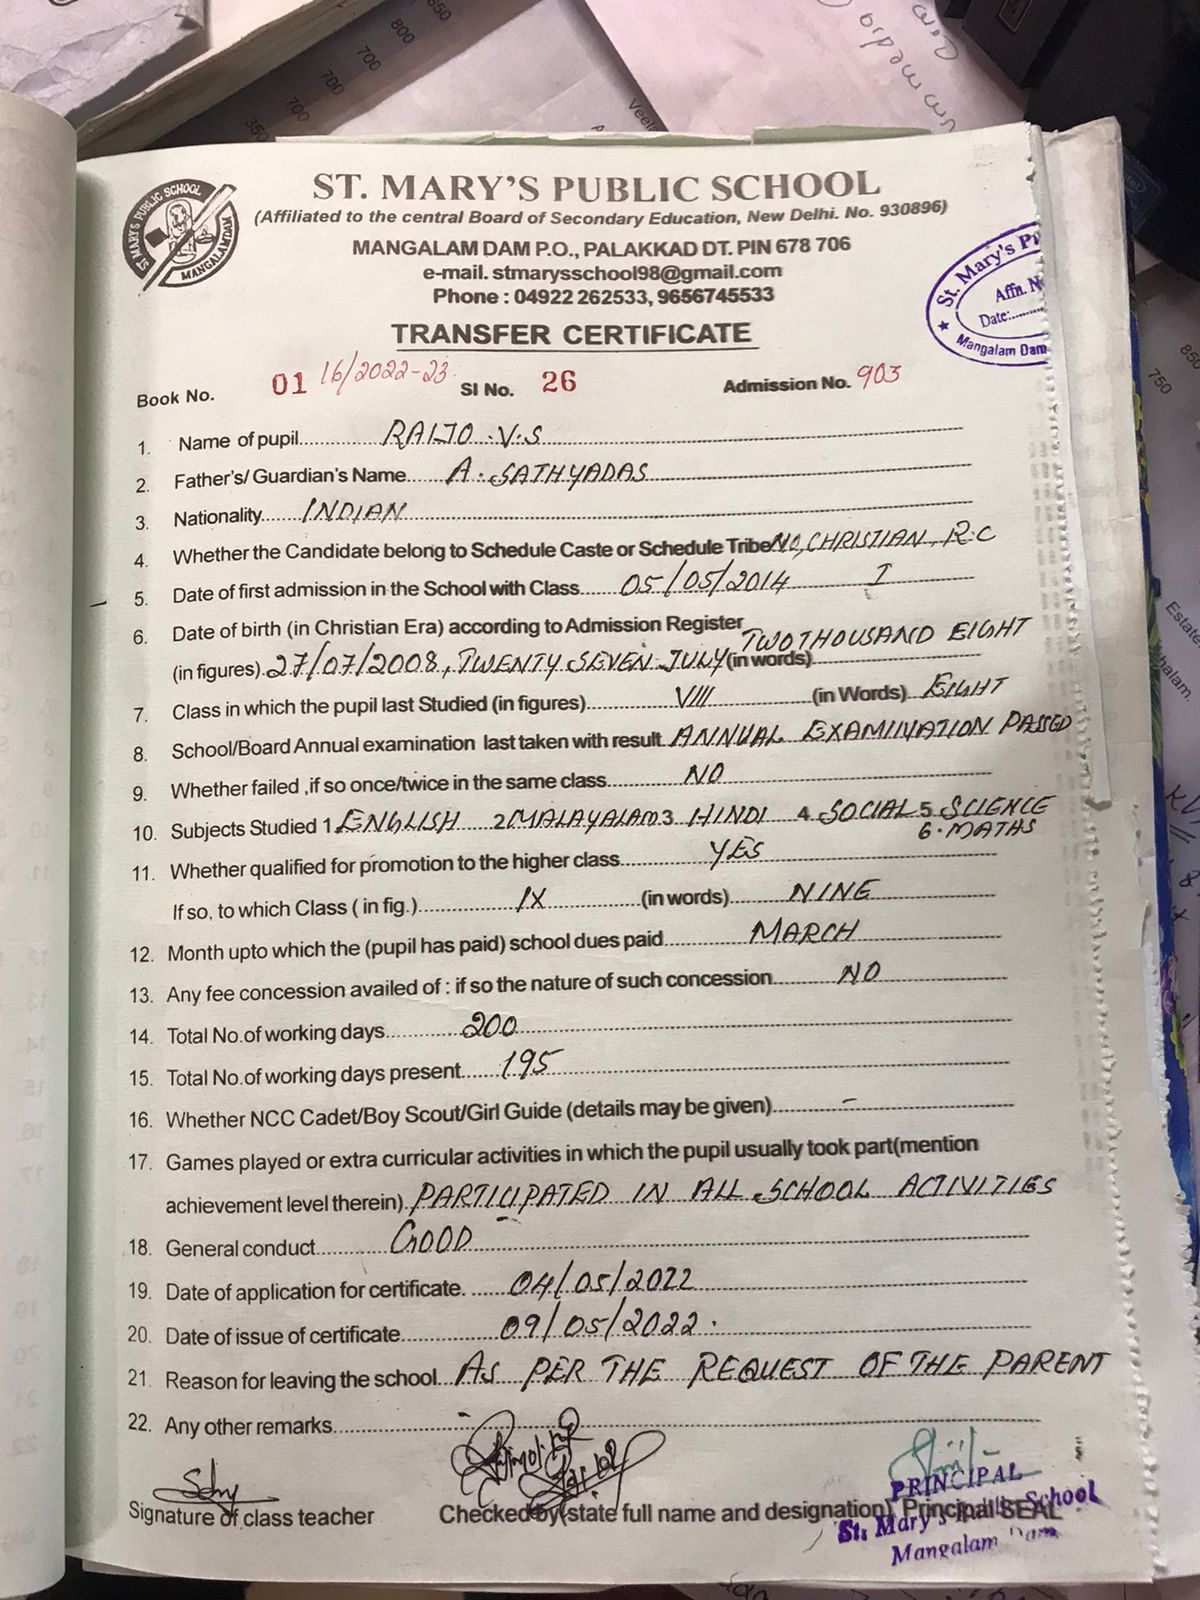 ST. MARY'S PUBLIC SCHOOL
(Affiliated to the central Board of Secondary Education, New Delhi. No. 930896)
MANGALAM DAM P.O., PALAKKAD DT. PIN 678 706
e-mail. stmarysschool98@gmail.com
Phone : 04922 262533, 9656745533
ST MARY'S PUBLIC SCHOOL
MANGALAMDAM
St. Mary's
Affn. N
Date:
Mangalam Dam
TRANSFER CERTIFICATE
Book No. 01 16/2022-23 Sl No. 26 Admission No. 903
1. Name of pupil RAIJO .V.S
2. Father's/ Guardian's Name A. SATHYADAS
3. Nationality INDIAN
4. Whether the Candidate belong to Schedule Caste or Schedule Tribe NO, CHRISTIAN, R.C
5. Date of first admission in the School with Class 05/05/2014 I
6. Date of birth (in Christian Era) according to Admission Register TWO THOUSAND EIGHT
(in figures) 27/07/2008, TWENTY SEVEN JULY (in words)
7. Class in which the pupil last Studied (in figures) VIII (in Words) EIGHT
8. School/Board Annual examination last taken with result ANNUAL EXAMINATION PASSED
9. Whether failed ,if so once/twice in the same class NO
10. Subjects Studied 1 ENGLISH 2 MALAYALAM 3 HINDI 4 SOCIAL 5 SCIENCE
6. MATHS
11. Whether qualified for promotion to the higher class YES
If so, to which Class ( in fig.) IX (in words) NINE
12. Month upto which the (pupil has paid) school dues paid MARCH
13. Any fee concession availed of : if so the nature of such concession NO
14. Total No.of working days 200
15. Total No.of working days present 195
16. Whether NCC Cadet/Boy Scout/Girl Guide (details may be given) -
17. Games played or extra curricular activities in which the pupil usually took part(mention
achievement level therein) PARTICIPATED IN ALL SCHOOL ACTIVITIES
18. General conduct GOOD
19. Date of application for certificate. 04/05/2022
20. Date of issue of certificate 09/05/2022.
21. Reason for leaving the school AS PER THE REQUEST OF THE PARENT
22. Any other remarks -
Signature of class teacher Checked by(state full name and designation) Principal SEAL
PRINCIPAL
St. Mary's Public School
Mangalam Dam